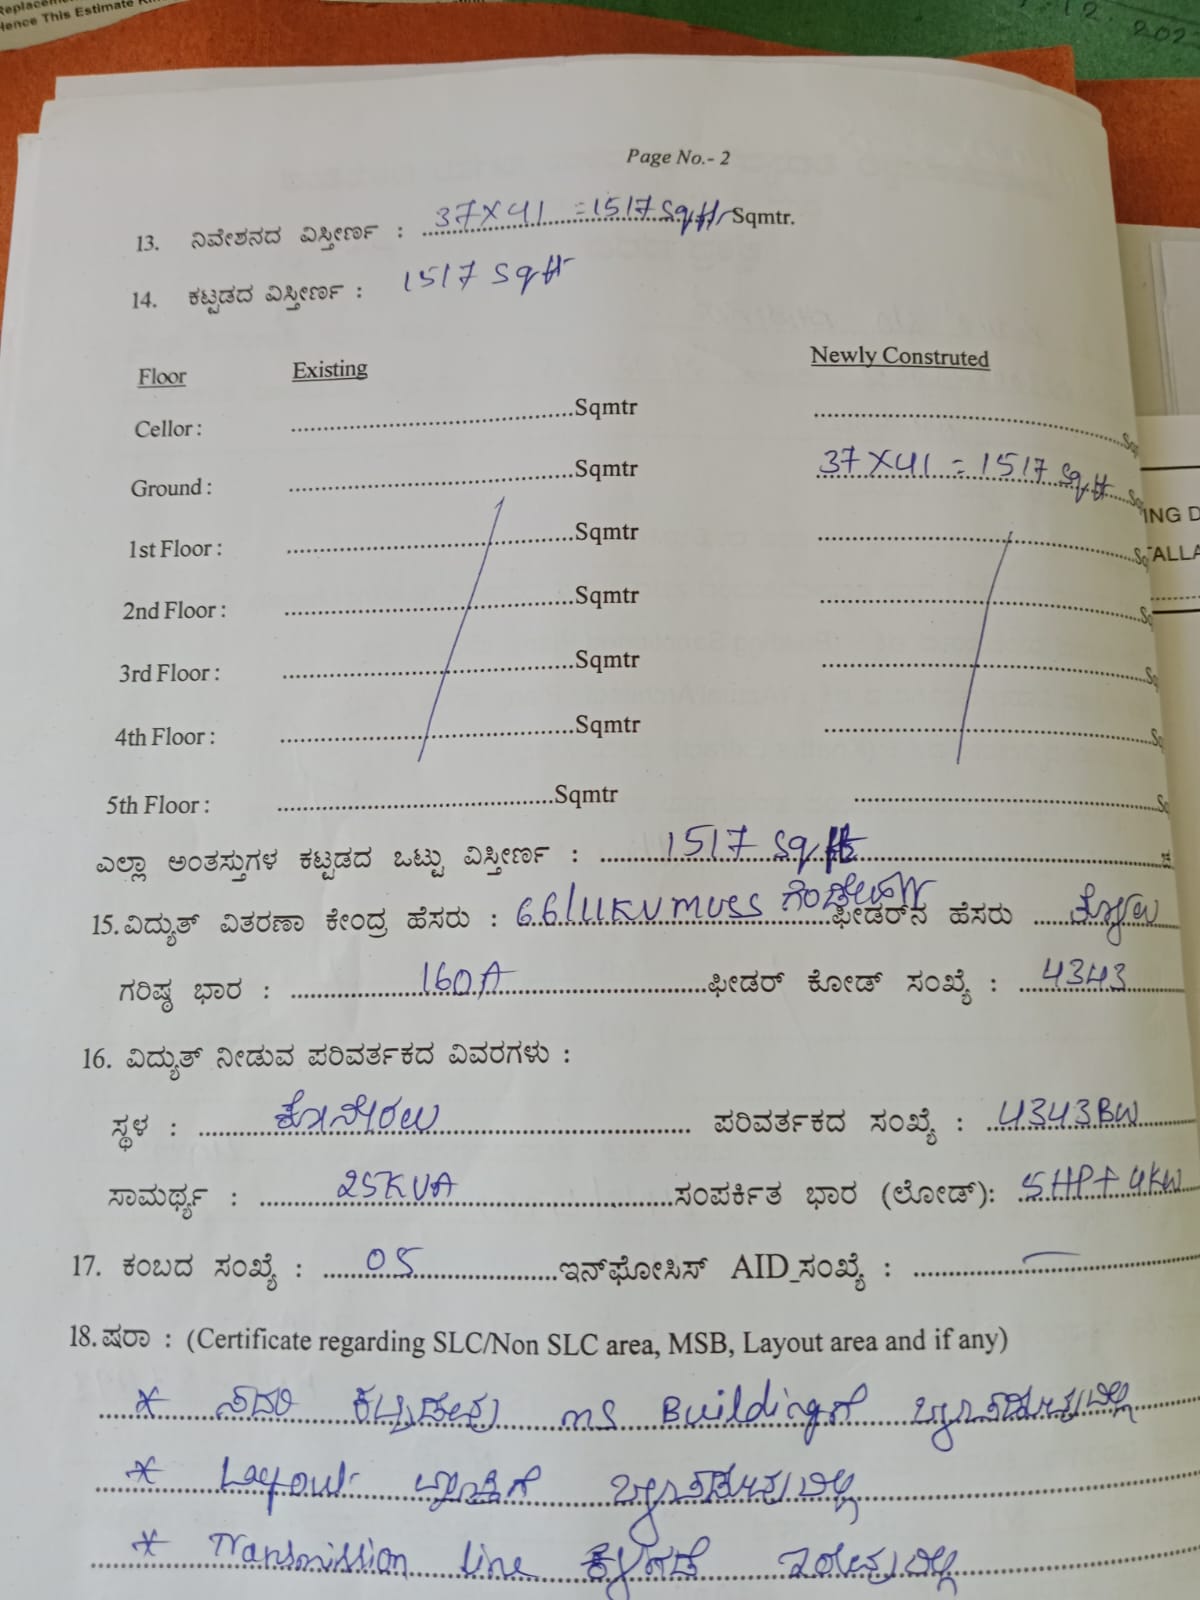 Hence This Estimate
.12.
202
Page No.- 2
13. ನಿವೇಶನದ ವಿಸ್ತೀರ್ಣ : 37X41 = 1517 Sqft Sqmtr.
14. ಕಟ್ಟಡದ ವಿಸ್ತೀರ್ಣ : 1517 Sqft
Floor Existing Newly Construted
Cellor : ..........Sqmtr ..........Sq
Ground : ..........Sqmtr 37X41 = 1517 Sqft Sq
1st Floor : ..........Sqmtr ..........Sq
2nd Floor : ..........Sqmtr ..........Sq
3rd Floor : ..........Sqmtr ..........Sq
4th Floor : ..........Sqmtr ..........Sq
5th Floor : ..........Sqmtr ..........Sq
ಎಲ್ಲಾ ಅಂತಸ್ತುಗಳ ಕಟ್ಟಡದ ಒಟ್ಟು ವಿಸ್ತೀರ್ಣ : 1517 Sqft ..........ಚ
15. ವಿದ್ಯುತ್ ವಿತರಣಾ ಕೇಂದ್ರ ಹೆಸರು : 66/11KV MUSS ಫೀಡರ್‌ನ ಹೆಸರು
ಗರಿಷ್ಠ ಭಾರ : 160A ಫೀಡರ್ ಕೋಡ್ ಸಂಖ್ಯೆ : 4343
16. ವಿದ್ಯುತ್ ನೀಡುವ ಪರಿವರ್ತಕದ ವಿವರಗಳು :
ಸ್ಥಳ : ಕೋನೇರಲು ಪರಿವರ್ತಕದ ಸಂಖ್ಯೆ : 4343BW
ಸಾಮರ್ಥ್ಯ : 25KVA ಸಂಪರ್ಕಿತ ಭಾರ (ಲೋಡ್): 5HP+4KW
17. ಕಂಬದ ಸಂಖ್ಯೆ : 05 ಇನ್‌ಫೋಸಿಸ್ AID_ಸಂಖ್ಯೆ : —
18. ಷರಾ : (Certificate regarding SLC/Non SLC area, MSB, Layout area and if any)
* ಸದರಿ ಕಟ್ಟಡವು MS Buildingಗೆ
* Layout
* Transmission line ಕೆಳಗಡೆ ಇರುವುದಿಲ್ಲ
ING D
TALLA